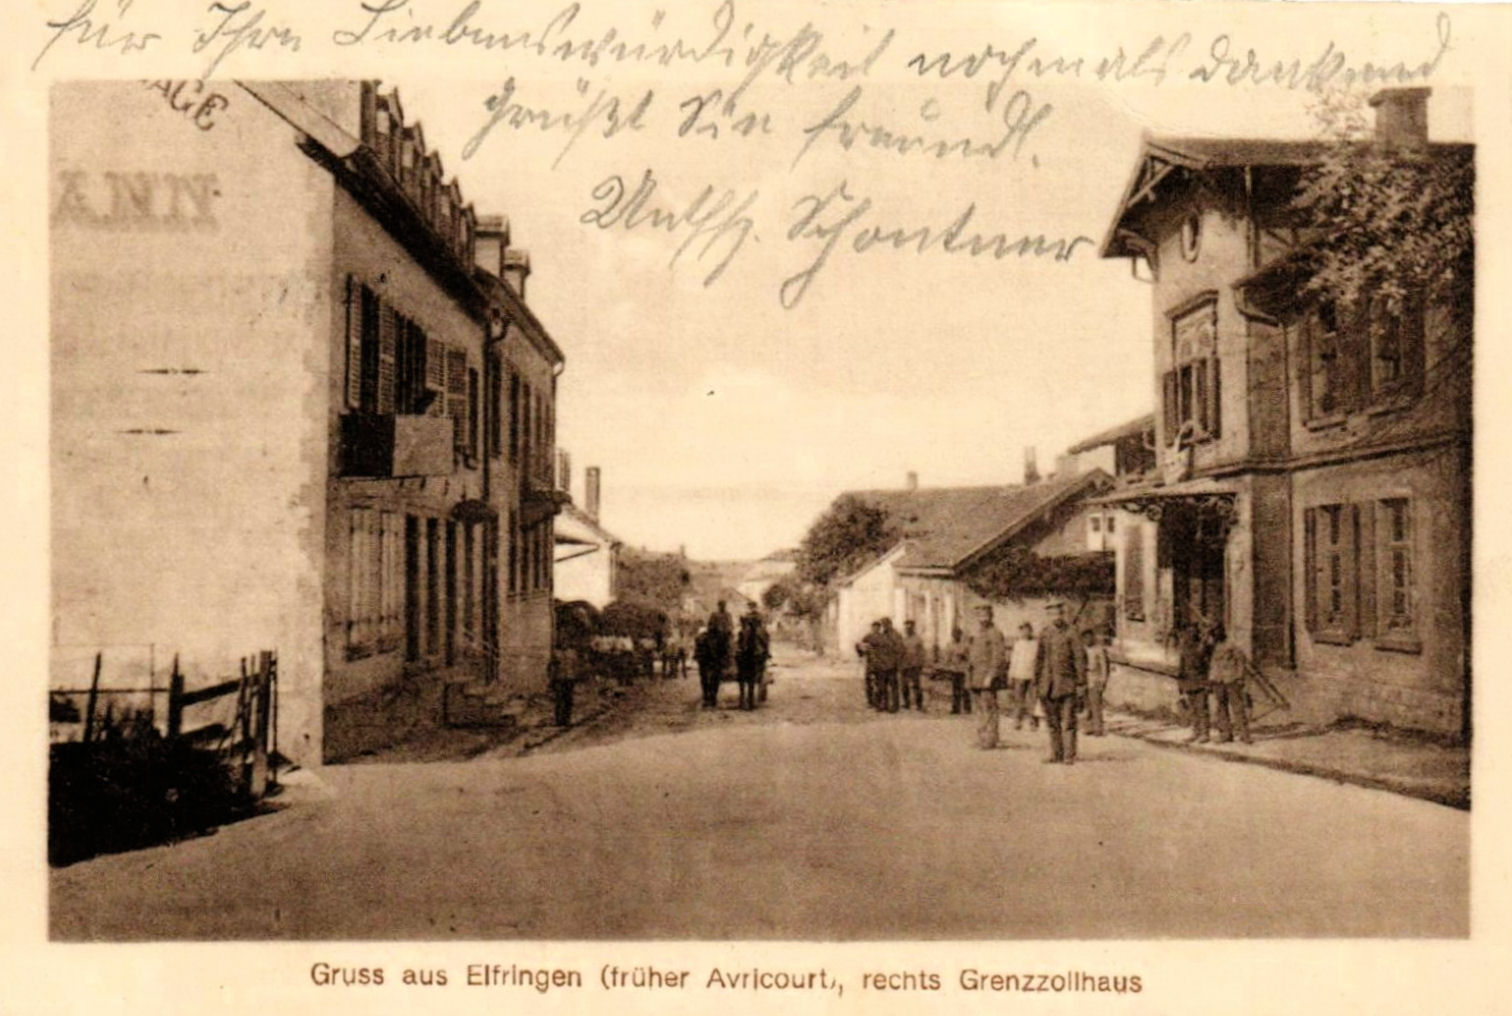 für Ihre Liebenswürdigkeit nochmals dankend
grüßt Sie freundl.
Schontner
AGE
ANN
Gruss aus Elfringen (früher Avricourt), rechts Grenzzollhaus